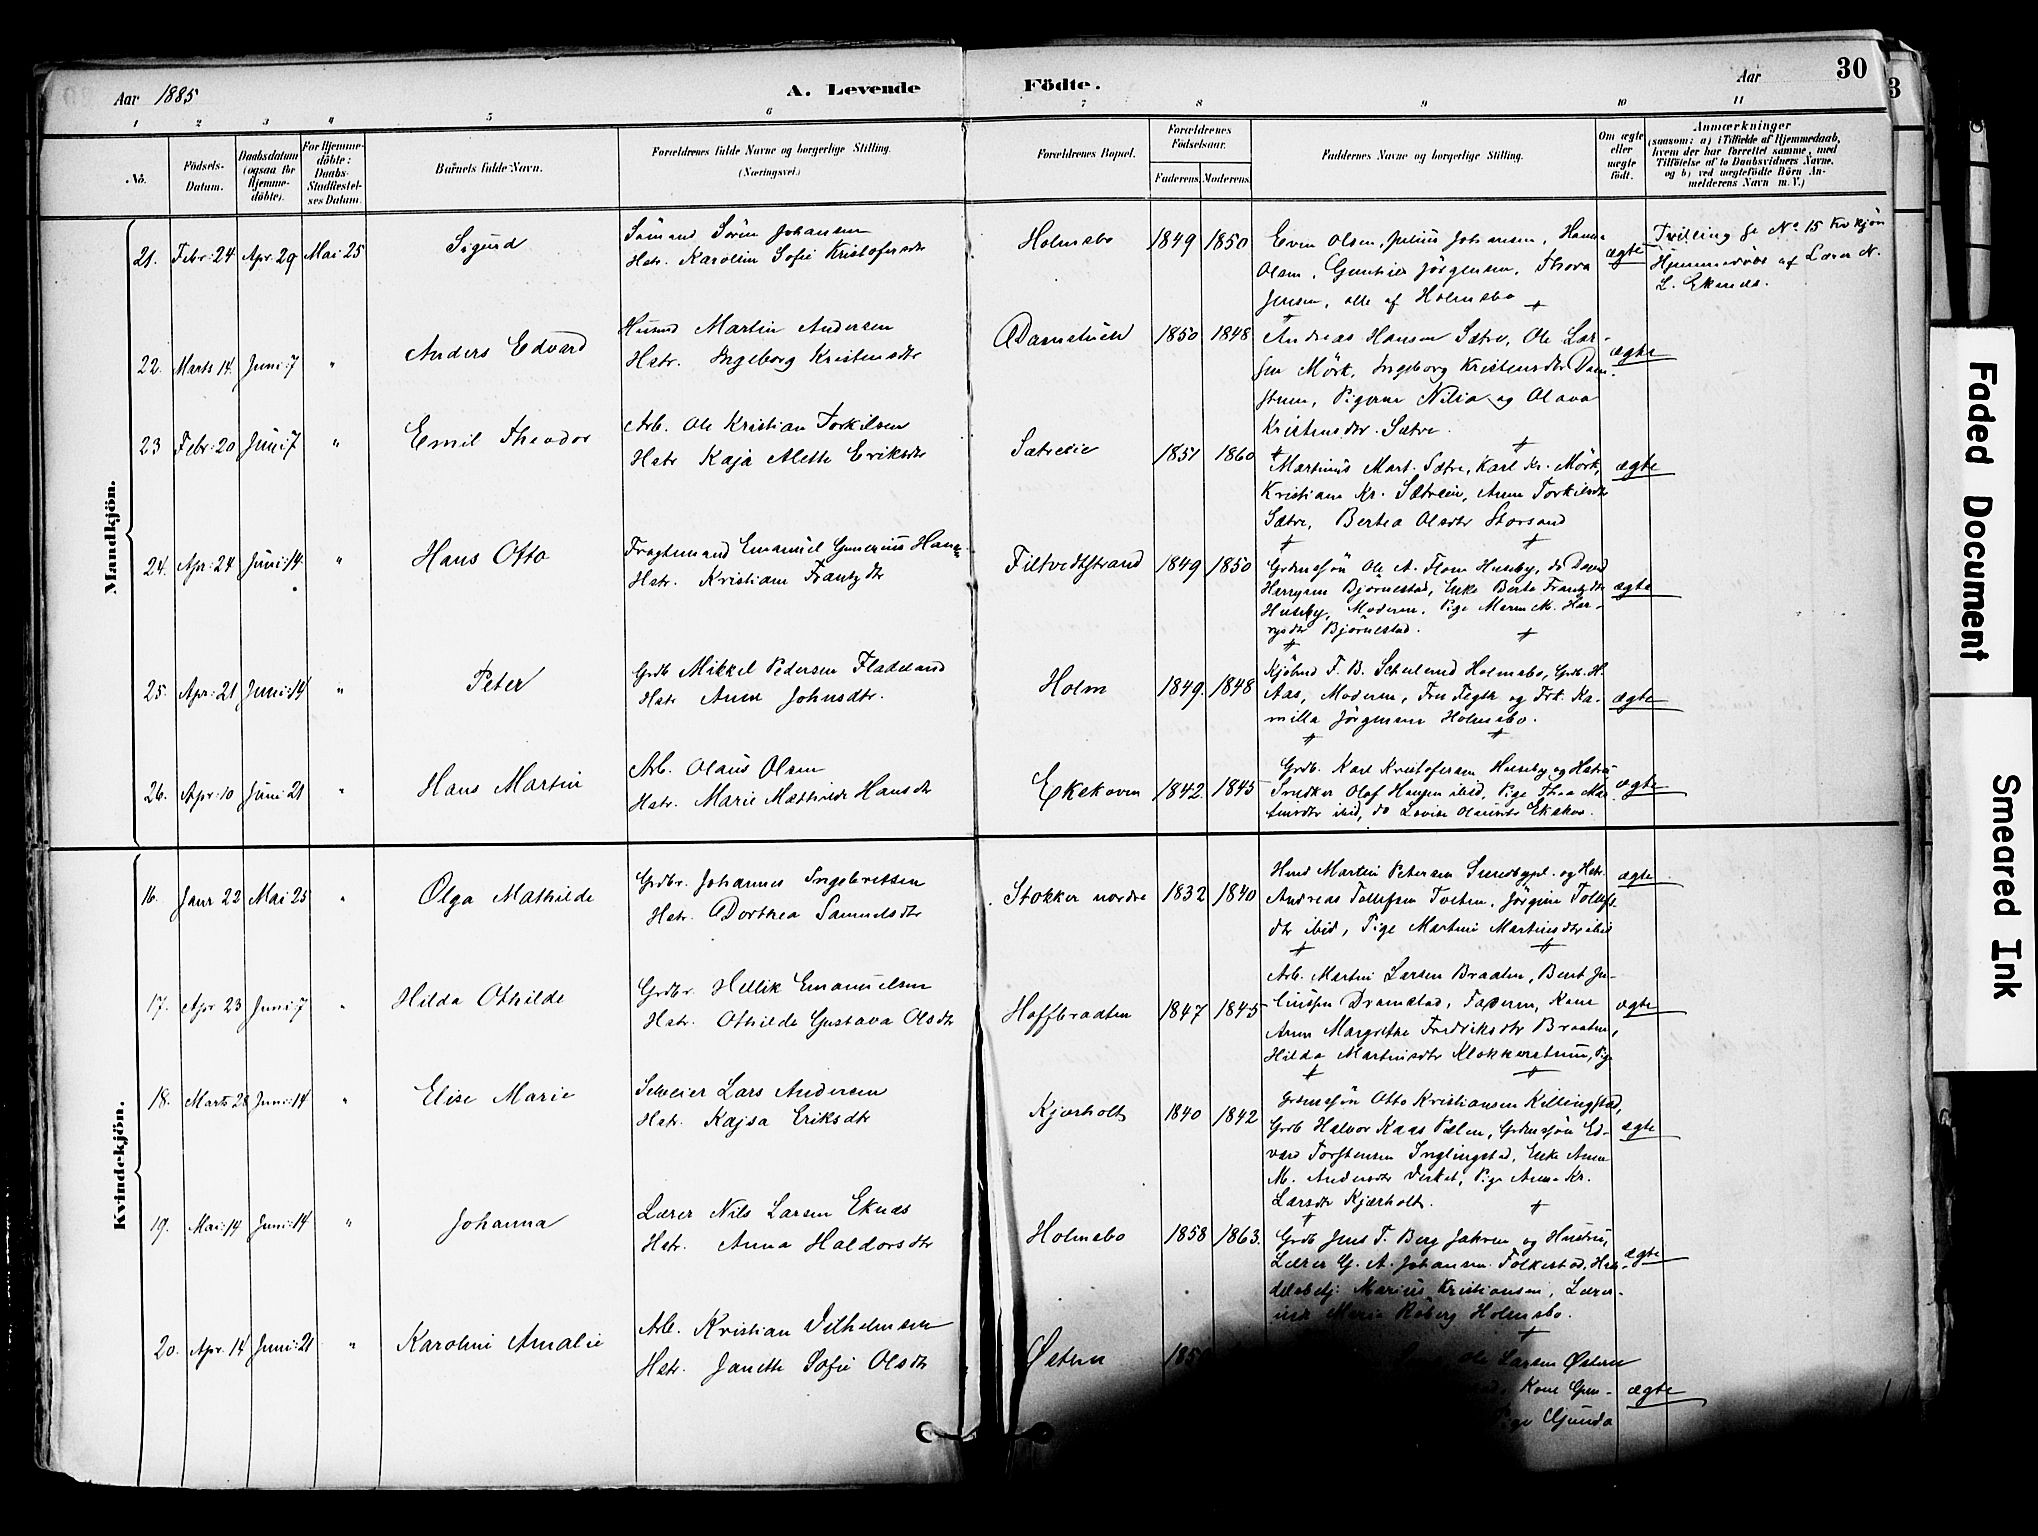 30
Aar 1885
A. Levende
Födte.
Aar
1 2 3 4 5 6 7 8 9 10 11
No.
Födsels-Datum.
Daabsdatum (ogsaa for Hjemme-döbte).
For Hjemme-döbte: Daabs-Stadfæstel-ses Datum.
Barnets fulde Navn.
Forældrenes fulde Navne og borgerlige Stilling.
(Næringsvei.)
Forældrenes Bopæl.
Forældrenes Födselsaar.
Faderens. Moderens.
Faddernes Navne og borgerlige Stilling.
Om ægte eller uægte födt.
Anmærkninger
(saasom: a) i Tilfælde af Hjemmedaab,
hvem der har forrettet samme, med
Tilföielse af to Daabsvidners Navne.
og b) ved uegtefödte Börn An-
melderens Navn m. V.)
Mandkjön.
21. Febr: 24 Apr. 29 Mai 25 Sigurd
Sömand Sören Johansen
Hstr. Karoline Sofie Kristofersdtr
Holmsbo 1849 1850
Even Olsen, Julius Johansen, Hans
Olsen, Jörgensen, Thora
Jensen, alle af Holmsbo
ægte
Tvilling se No 15 Kvkjön
Hjemmedöbt af Lærer N.
L. Eknes.
22. Marts 14. Juni 7 " Anders Edvard
Husmd Martin Andersen
Hstr. Ingeborg Kristensdtr
1850 1848
Andreas Hansen Sætre, Ole Lar-
sen Mörk, Ingeborg Kristensdtr Dam-
Pigerne Nilia og Olava
Kristensdtr. Sætre.
ægte
23 Febr: 20 Juni 7 " Emil Theodor
Arb. Ole Kristian Torkilsen
Hstr Kaja Alette Eriksdtr
Sætreeie 1851 1860
Martinus Mart. Sætre, Karl Kr. Mörk,
Kristiane Kr. Sætreeie, Anne Torkilsdtr
Sætre, Bertea Olsdtr Storsand
ægte
24. Apr: 24 Juni 14. " Hans Otto
Fragtemand Emanuel Gunerius Hans
Hstr. Kristiane Frantzdtr
Filtvedtstrand 1849 1850
Grdmssön Ole A. Huseby, do David
Harrysen Björnestad, Enke Berte Frantzdtr
Huseby, Moderen, Pige Maren M. Har-
rysdtr Björnestad.
ægte
25. Apr: 21 Juni 14 " Peter
Grdb Mikkel Pedersen Fladeland
Hstr Anne Johnsdtr.
Holm 1849. 1848
Kjöbmd F. B. Holmsbo, Grdb. H.
Aas, Moderen, Fru og Frk. Ka-
milla Jörgensen Holmsbo.
ægte
26. Apr: 10 Juni 21 " Hans Martin
Arb. Olaus Olsen
Hstr. Marie Mathilde Hansdtr
Ekekoven 1842. 1845
Grdb. Karl Kristofersen Huseby og Hstru
Snedker Olaf Hansen ibid, Pige Thea Mar-
tinsdtr ibid, do Lovise Olausdtr Ekekov.
ægte
Kvindekjön.
16. Janr 22 Mai 25 " Olga Mathilde
Grdbr. Johannes Ingebretsen
Hstr. Dorthea Samuelsdtr
Stokker nordre 1832 1840
Hmd Martin Petersen Sundbypl. og Hstr.
Andreas Tollefsen Tveten, Jörgine Tollefs-
dtr ibid, Pige Martine Martinsdtr ibid
ægte
17. Apr 23 Juni 7 " Hilda Othilde
Grdbr. Hellik Emanuelsen
Hstr. Othilde Gustava Olsdtr
Hoffbraaten 1847 1845
Arb. Martin Larsen Braaten, Bent Ju-
liussen Dramstad, Faderen, Kone
Anne Margrethe Fredriksdtr Braaten,
Hilda Martinsdtr Klokkerstuen, Pige
ægte
18. Marts 28 Juni 14 " Elise Marie
Selveier Lars Andersen
Hstr. Kajsa Eriksdtr
Kjærholt 1840 1842
Grdmssön Otto Kristiansen Killingstad,
Grdb Halvor Kaas Pælen, Grdmssön Ed-
vard Torstensen Inglingstad, Enke Anne
M. Andersdtr Virket, Pige Anne Kr.
Larsdtr Kjærholt.
ægte
19. Mai 14 Juni 14 " Johanna
Lærer Nils Larsen Eknæs
Hstr. Anna Haldorsdtr
Holmsbo 1858 1863.
Grdb Jens F. Berg Jahren og Hustru,
Lærer G. A. Johansen Folkestad, Han-
delsbetj: Marius Kristiansen, Lærer-
inde Marie Röberg Holmsbo.
ægte
20. Apr. 14 Juni 21 " Karoline Amalie
Arb. Kristian Vilhelmsen
Hstr. Janette Sofie Olsdtr
Østern
Ole Larsen Østern
Kone Gun-
Pige Gunda
ægte
Faded Document
Smeared Ink